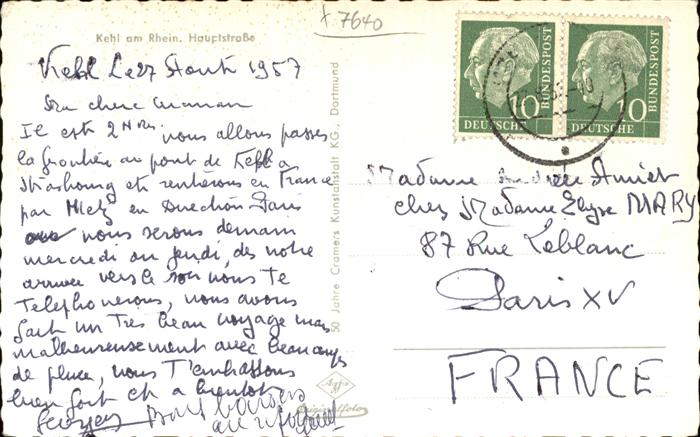 + 7640
Kehl am Rhein. Hauptstraße
Kehl Le 27 Aout 1957
Ma chere maman
Il est 2 Hres nous allons passer
la frontière au pont de Kehl a
Strasbourg et rentrerons en France
par Metz en Direction Paris
nous serons demain
mercredi ou jeudi, des notre
arrivee vers le soir nous te
Telephonerons, nous avons
fait un Tres beau voyage mais
malheureusement avec beaucoup
de pluie, nous T'embrassons
bien fort et a bientot
Bons baisers
50 Jahre Cramers Kunstanstalt KG., Dortmund
Agfa
Originalfoto
10
DEUTSCHE
BUNDESPOST
10
DEUTSCHE
BUNDESPOST
Madame Andrée Amiet
chez Madame Elyse MARY
87 Rue Leblanc
Paris XV
FRANCE